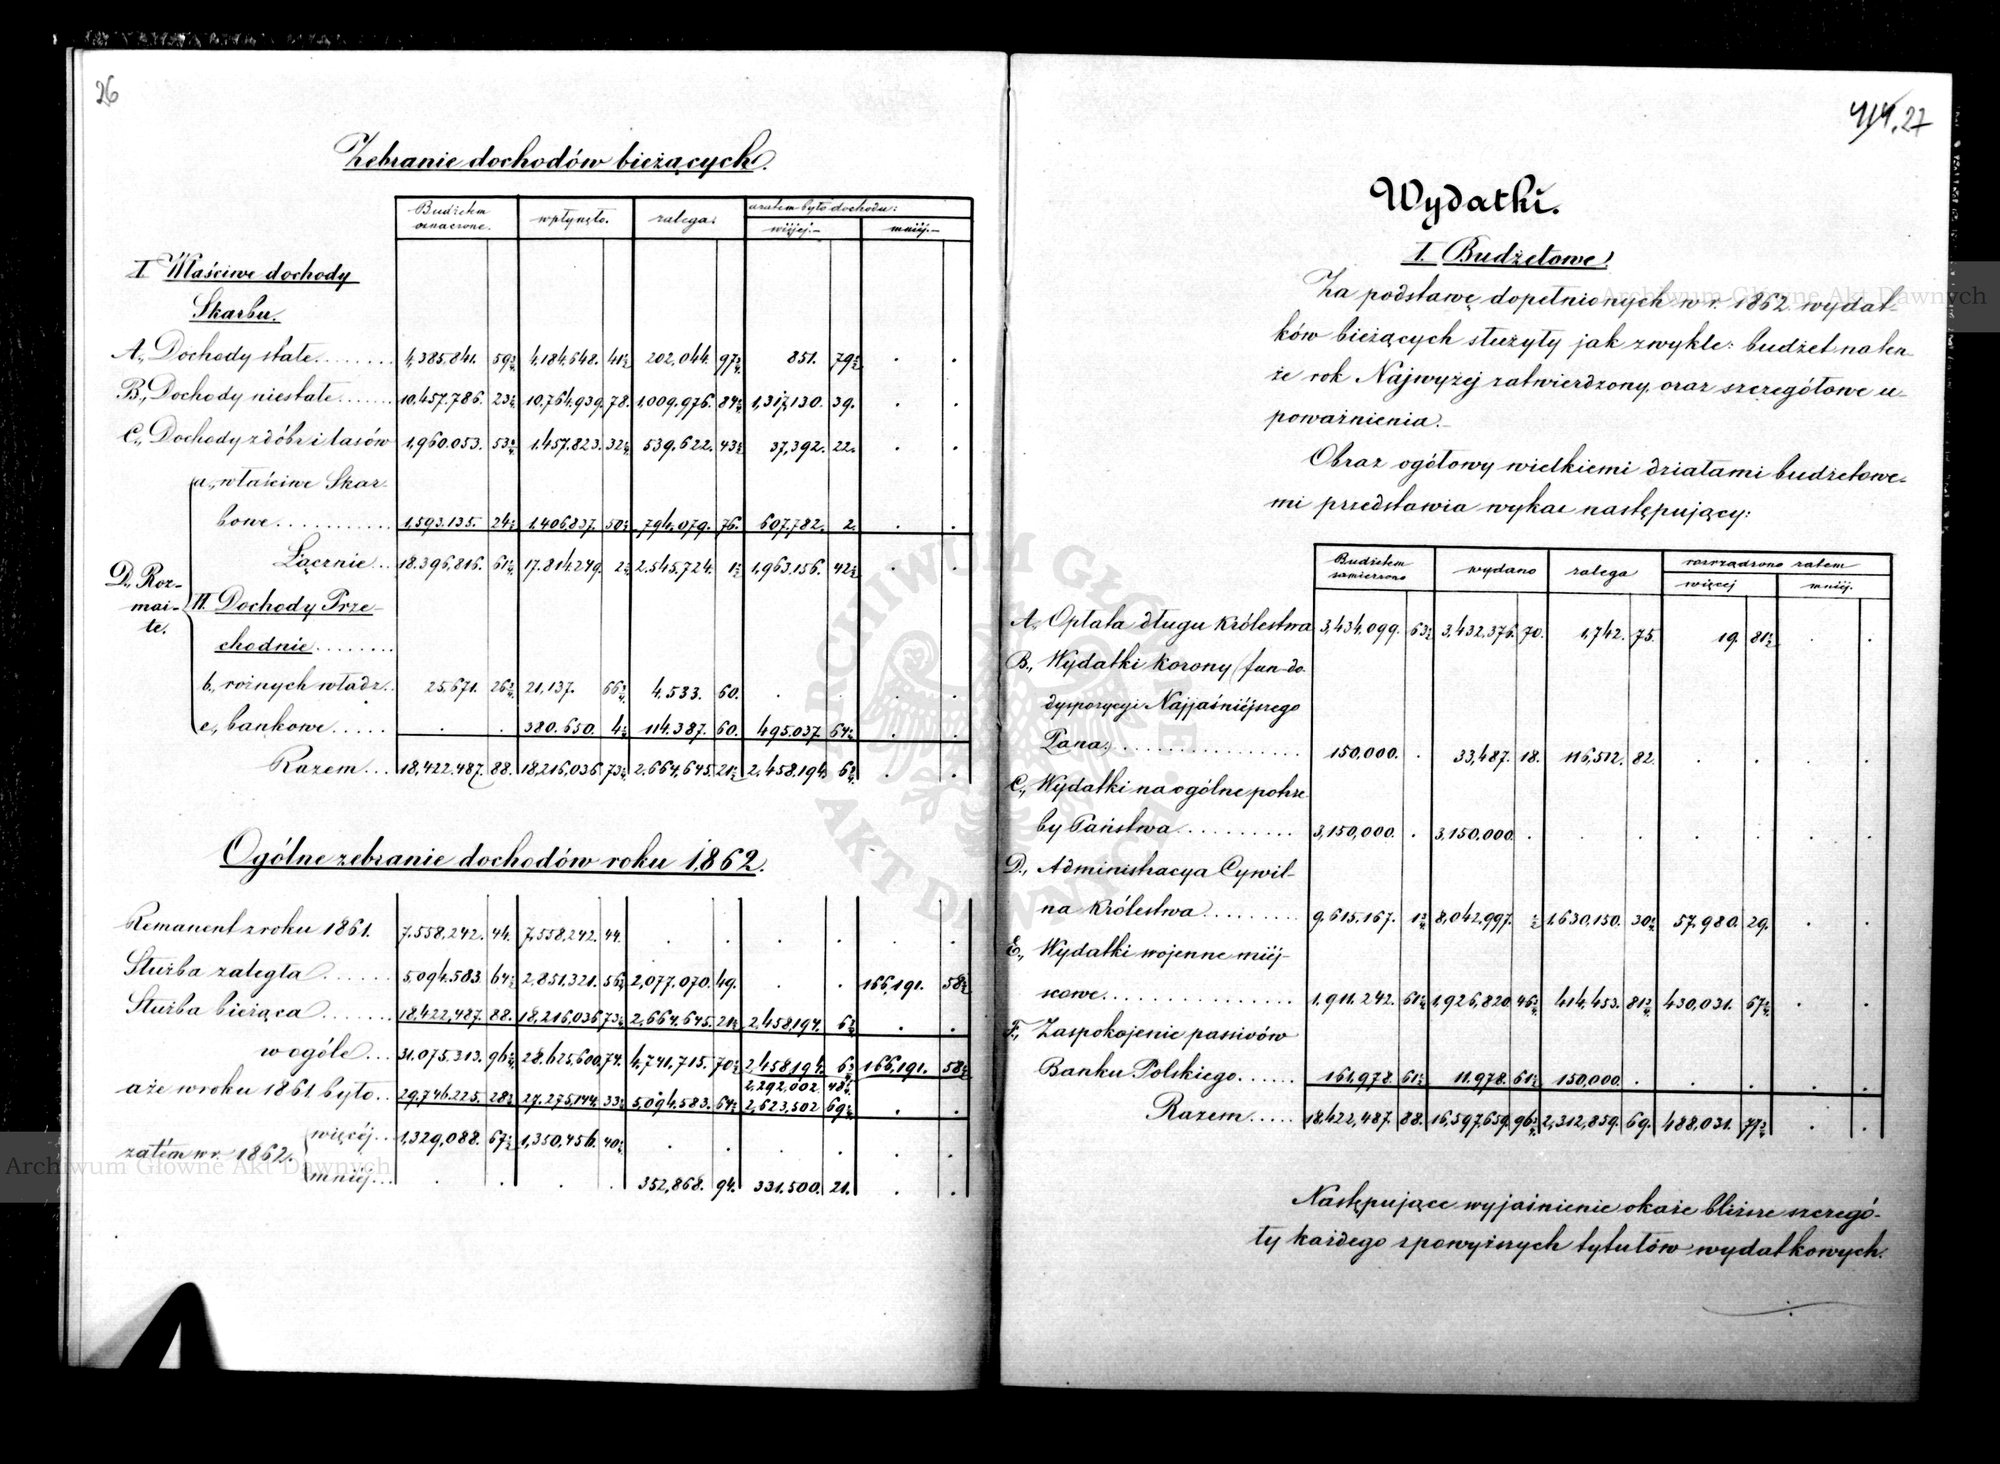 26
Zebranie dochodów bieżących.
Budżetem oznaczone. wpłynęło. zalega: zatem było dochodu:
więcej.- mniéj.-
I. Właściwe dochody
Skarbu.
A., Dochody stałe........ 4,385.841. 59 4,184,648. 41 202,044. 97 851. 79 . .
B., Dochody niestałe....... 10,457.786. 23 10,764,939. 78. 1,009,976. 84 1,317,130. 39. . .
C., Dochody z dóbr i lasów 1,960.053. 53 1,457.823. 32 539.622. 43 37,392. 22. . .
a., właściwe Skar-
bowe............ 1,593.135. 24 1,406,837. 50 794,079. 76. 607,782. 2. . .
Łącznie... 18.396,816. 61 17.814249. 2 2,545,724. 1 1,963,156. 42 . .
D., Roz-
mai-
te.
II. Dochody Prze-
chodnie........
b., rożnych władz.. 25,671. 26 21,137. 66 4,533. 60. . . . .
c., bankowe..... . . 380.650. 4 114.387. 60. 495.037 64 . .
Razem... 18,422,487. 88. 18,216,036. 73 2.664,645. 21 2,458,194. 6 . .
Ogólne zebranie dochodów roku 1,862.
Remanent z roku 1861. 7.558,242. 44. 7,558,242. 44. . . . . . .
Służba zaległa....... 5,094.583. 64 2,851,321. 56 2,077.070. 49. . . 166,191. 58
Służba bieżąca....... 18,422,487. 88. 18,216,036. 73 2,664,645. 21 2,458,194. 6 . .
w ogóle... 31.075.313. 96 28.625,600. 74. 4,741,715. 70 2,458,194. 6 166,191. 58
2,292,002 48
a że w roku 1861 było.. 29,746.225. 28 27,275,144. 33 5,094.583. 64 2,623,502 69 . .
zatém w r. 1862. więcéj.. 1,329,088. 67 1,350,456. 40 . . . . . .
mniéj... . . . . 352,868. 94. 331.500. 21. . .
414. 27
Wydatki.
I. Budżetowe.
Za podstawę dopełnionych w r. 1862 wydat-
ków bieżących służyły jak zwykle: budżet na ten-
że rok Najwyżej zatwierdzony, oraz szczegółowe u-
poważnienia.-
Obraz ogółowy wielkiemi działami budżetowe-
mi przedstawia wykaz następujący:
Budżetem zamierzono wydano zalega rozrządzono zatem
więcej mniéj.
A., Opłata długu Królestwa 3,434,099. 63 3,432,376. 70. 1,742. 75. 19. 81 . .
B., Wydatki korony (fun-do.
dyspozycyi Najjaśniéjszego
Pana)................ 150,000. . 33,487. 18. 116,512. 82. . . . .
C., Wydatki na ogólne potrze
by Państwa.......... 3,150,000. . 3,150,000. . . . . . . .
D., Administracya Cywil-
na Królestwa........ 9,615.167. 1 8,042,997. 1,630,150. 30 57,980. 29. . .
E., Wydatki wojenne miéj-
scowe................ 1,911,242. 61 1,926,820. 46 414,453. 81 430,031. 67 . .
F., Zaspokojenie passivów
Banku Polskiego...... 161,978. 61 11.978. 61 150,000. . . . . .
Razem..... 18,422,487. 88. 16,597,659. 96 2,312,859. 69. 488,031. 77 . .
Następujące wyjaśnienie okaże bliższe szczegó-
ły każdego z powyższych tytułów wydatkowych.
Archiwum Główne Akt Dawnych
Archiwum Główne Akt Dawnych
ARCHIWUM GŁÓWNE AKT DAWNYCH